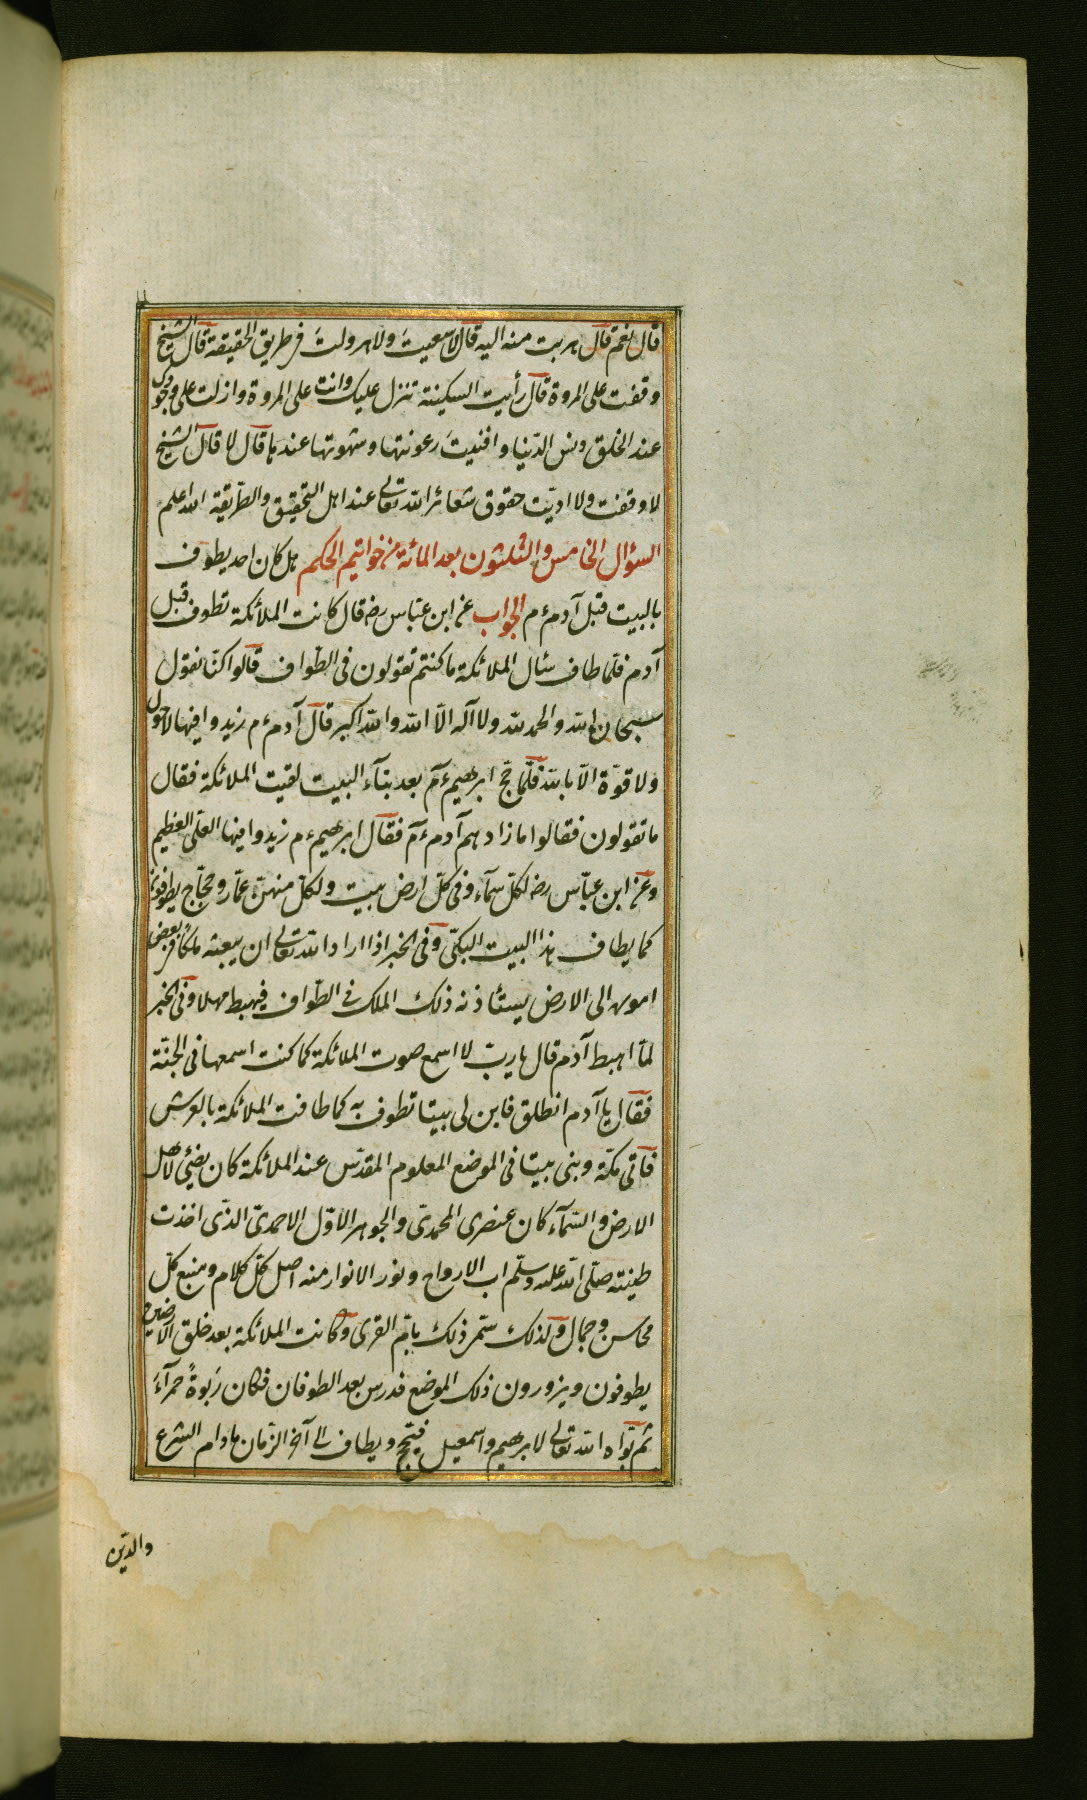 قال نعم قال هربت منه اليه قال لا سعيت ولا هرولت في طريق الحقيقة قال الشيخ
وقفت على المروة قال رأيت السكينة تنزل عليك وانت على المروة وازلت على وجودك
عند الخلق وبس الدنيا وافنيت رعونتها وشهوتها عندها قال لا قال الشيخ
لا وقفت ولا اديت حقوق شعائر الله تعالى عند اهل التحقيق والطريقة الله اعلم
السؤال الخامس والثلثون بعد المائة من خواتيم الحكم هل كان احد يطوف
بالبيت قبل آدم ءم الجواب عن ابن عباس رضه قال كانت الملائكة تطوف قبل
آدم فلما طاف سئال الملائكة ما كنتم تقولون في الطواف قالوا كنا نقول
سبحان الله والحمد لله ولا اله الا الله والله اكبر قال آدم ءم زيدوا فيها لا حول
ولا قوة الا بالله فلما حج ابرهيم ءم بعد بنآء البيت لقيت الملائكة فقال
ما تقولون فقالوا ما زادهم آدم ءم فقال ابرهيم ءم زيدوا فيها العلى العظيم
وعن ابن عباس رضه لكل سمآء وفي كل ارض بيت ولكل منهن عمار وحجاج يطوفونه
كما يطاف هذا البيت المكى وفي الخبر اذا اراد الله تعالى ان يبعث ملكا في بعض
اموره الى الارض يستأذنه ذلك الملك في الطواف فيهبط مهلا وفي الخبر
لما اهبط آدم قال يا رب لا اسمع صوت الملائكة كما كنت اسمعها في الجنة
فقال يا آدم انطلق فابن لى بيتا تطوف به كما طافت الملائكة بالعرش
فأتى مكة وبنى بيتا في الموضع المعلوم المقدس عند الملائكة كان يضئ لاهل
الارض والسمآء كان عنصرى المحمدى والجوهر الاول الاحمدى الذى اخذت
طينته صلى الله عليه وسلم اب الارواح ونور الانوار منه اصل كل كلام ومنبع كل
محاسن وجمال ولذلك سمى ذلك بام القرى وكانت الملائكة بعد خلق الارضين
يطوفون ويزورون ذلك الموضع فدرس بعد الطوفان فكان ربوة حمرآء
ثم بوأه الله تعالى لابرهيم واسمعيل فيحج ويطاف الى آخر الزمان ما دام الشرع
والدين